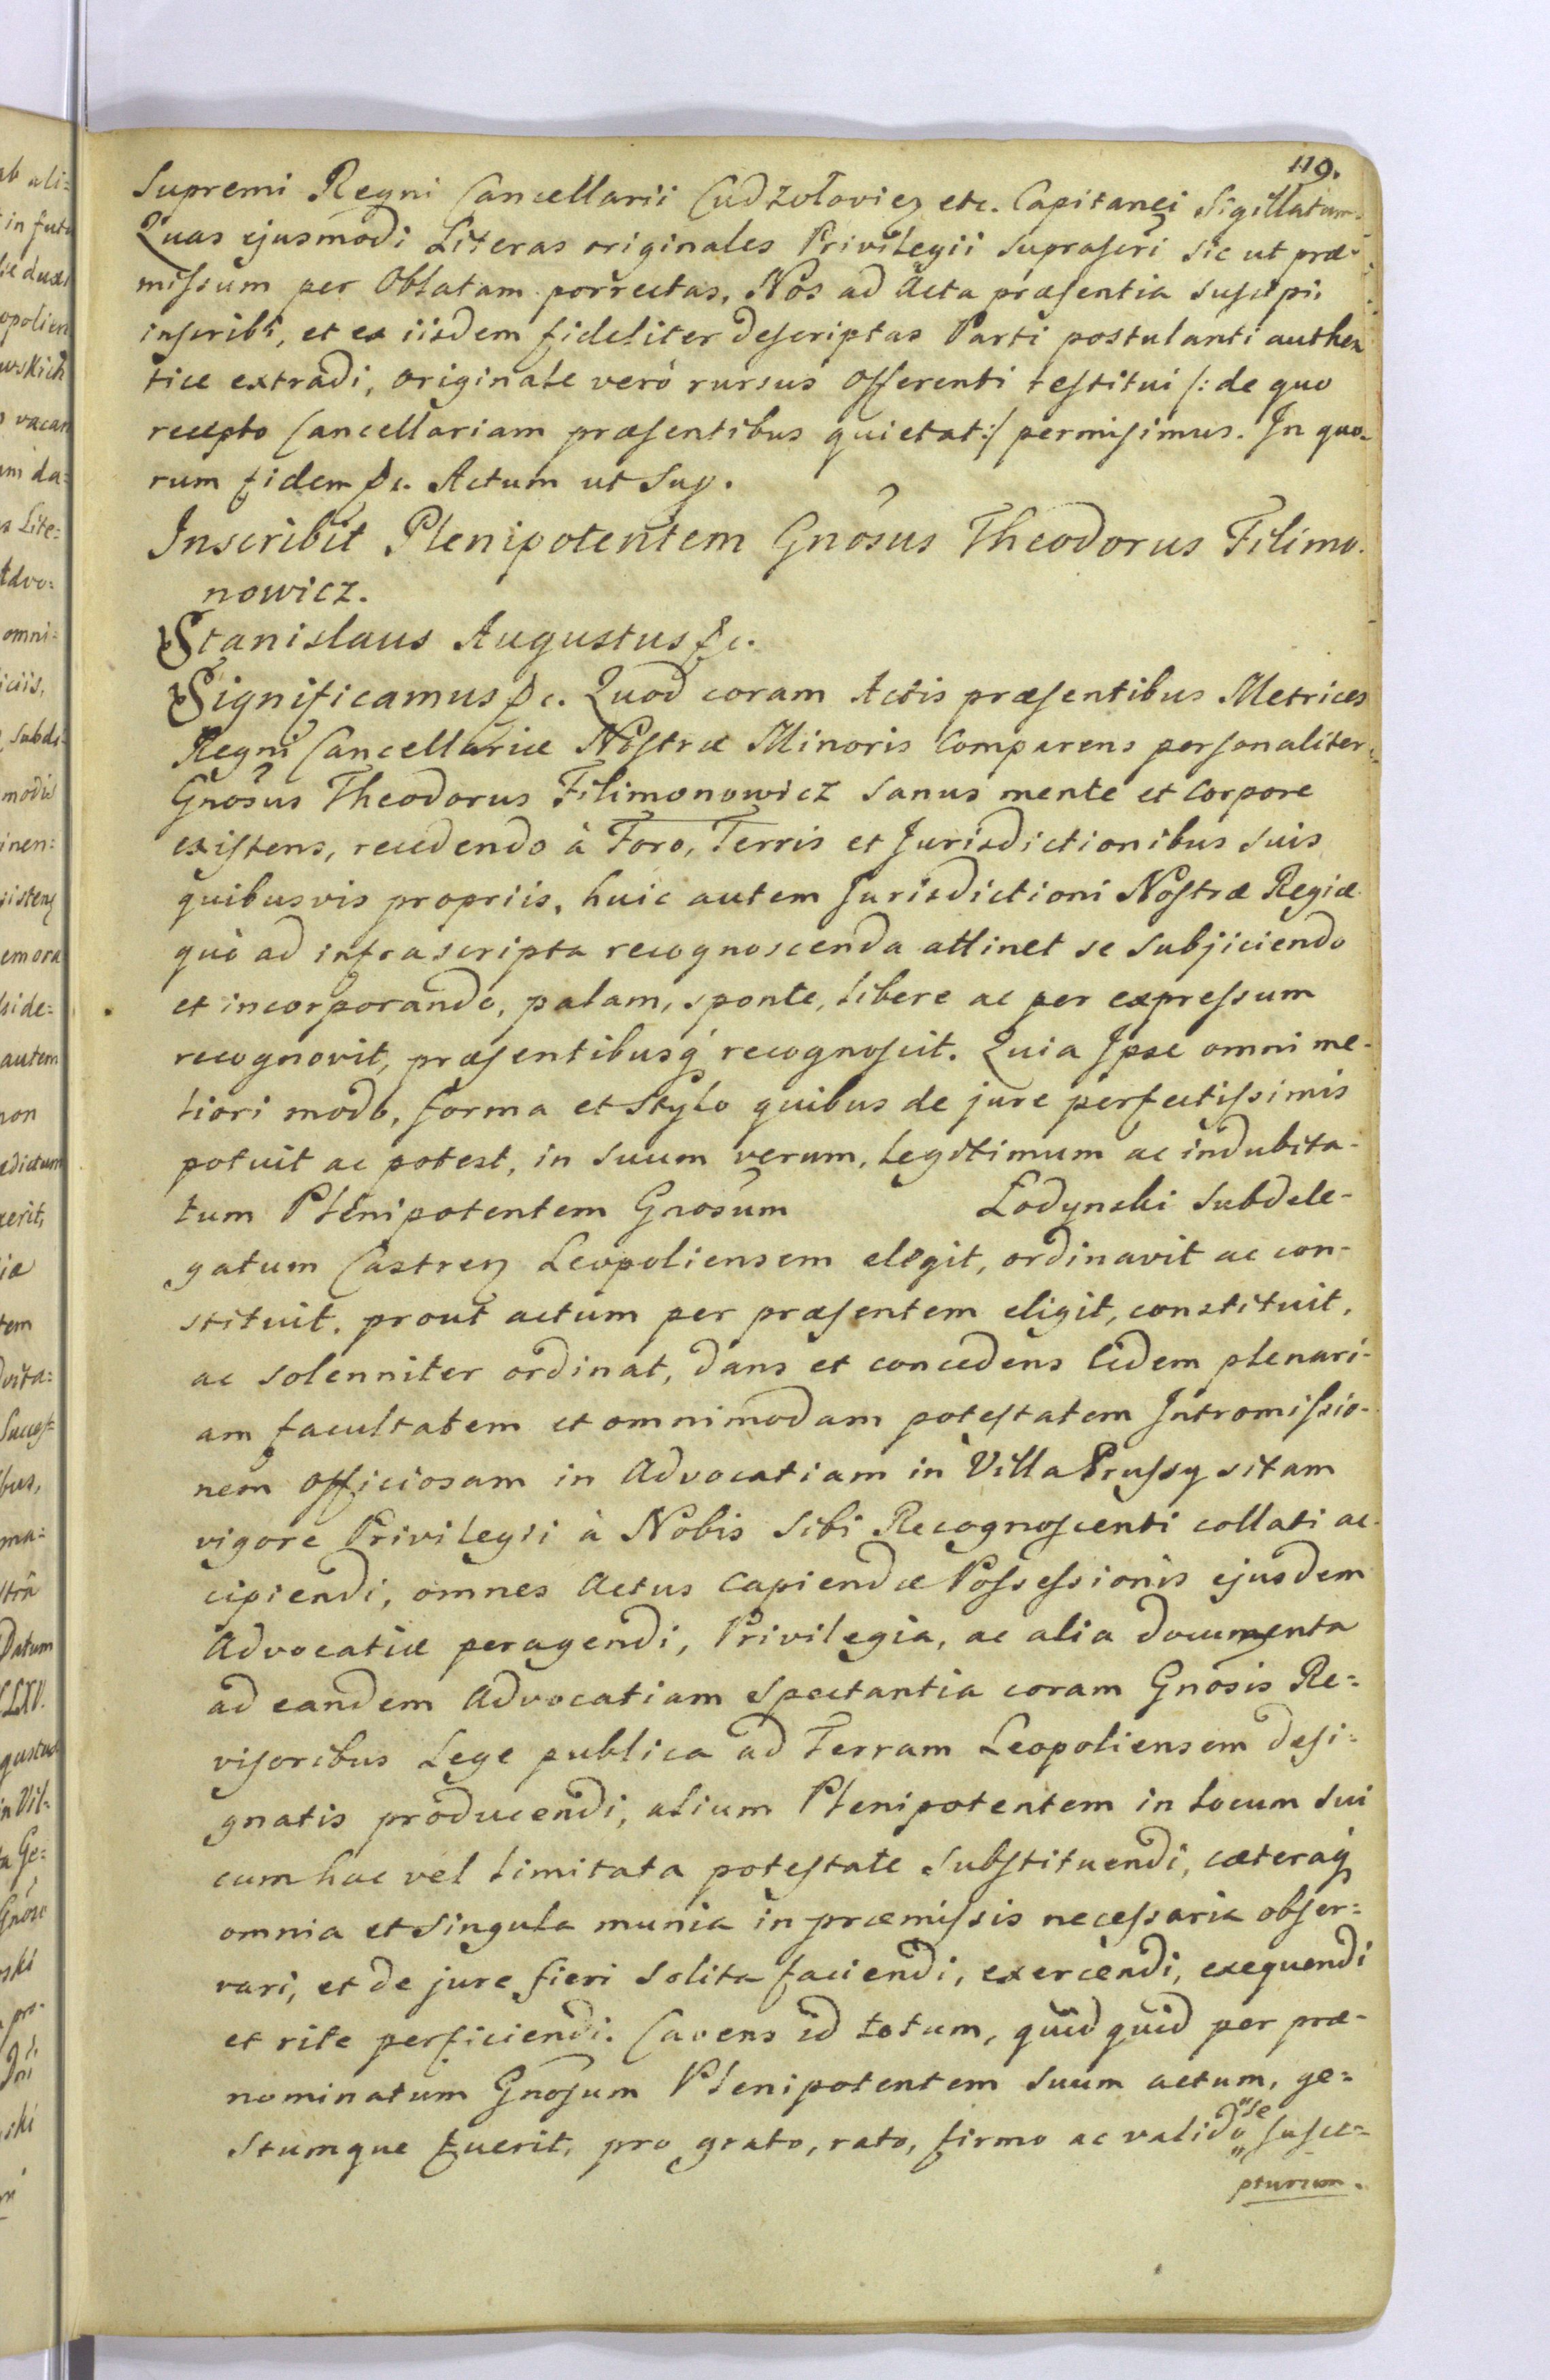 119.
Supremi Regni Cancellarii Cudzołovien etc. Capitanei Sigillatum.
Quas ejusmodi Literas originales Privilegii suprascri sic ut præ-
missum per Oblatam porrectas, Nos ad Acta præsentia suscipi,
inscribi, et ex iisdem fideliter descriptas Parti postulanti authen
tice extradi, originale verò rursus Offerenti restitui /: de quo
recepto Cancellariam præsentibus quietat :/ permisimus. In quo-
rum fidem &c. Actum ut Sup.
Inscribit Plenipotentem Gnosus Theodorus Filimo-
nowicz.
Stanislaus Augustus &c.
Significamus &c. Quod coram Actis præsentibus Metrices
Regni Cancellariæ Nostræ Minoris Comparens personaliter
Gnosus Theodorus Filimonowicz sanus mente et Corpore
existens, recedendo à Foro, Terris et Jurisdictionibus suis
quibusvis propriis, huic autem Jurisdictioni Nostræ Regiæ
quò ad infrascripta recognoscenda attinet se subjiciendo
et incorporando, palam, sponte, libere ac per expressum
recognovit, præsentibusq́ recognoscit. Quia Ipse omni me-
liori modo, forma et Stylo quibus de jure perfectissimis
potuit ac potest, in suum verum, legitimum ac indubita-
tum Plenipotentem Gnosum Łodynski Subdele-
gatum Castren Leopoliensem elegit, ordinavit ac con-
stituit, prout actum per præsentem eligit, constituit,
ac solenniter ordinat, dans et concedens Eidem plenari-
am facultatem et omnimodam potestatem Intromissio-
nem Officiosam in Advocatiam in Villa Prussy sitam
vigore Privilegii à Nobis Sibi Recognoscenti collati ac-
cipiendi, omnes Actus Capiendæ Possessionis ejusdem
Advocatiæ peragendi, Privilegia, ac alia documenta
ad eandem Advocatiam spectantia coram Gnosis Re=
visoribus Lege publica ad Terram Leopoliensem desi=
gnatis producendi, alium Plenipotentem in locum sui
cum hac vel limitata potestate substituendi, cæteraq́
omnia et singula munia in præmissis necessaria obser=
vari, et de jure fieri solita faciendi, exercendi, exequendi
et rite perficiendi. Cavens id totum, quidquid per præ-
nominatum Gnosum Plenipotentem suum actum, ge=
stumque fuerit, pro grato, rato, firmo ac valido "se" susce=
pturum.